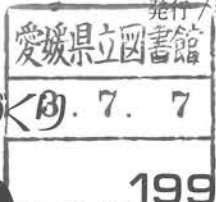 発行
愛媛県立図書館
3.7.7
199